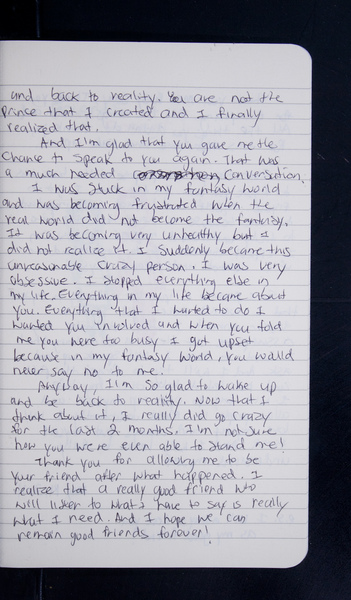 and back to reality. You are not the
Prince that I created and I finally
realized that.
And I'm glad that you gave me the
chance to speak to you again. That was
a much needed conversation.
I was stuck in my fantasy world
and was becoming frustrated when the
real world did not become the fantasy.
It was becoming very unhealthy but I
did not realize it. I suddenly became this
unreasonable crazy person. I was very
obsessive. I stopped everything else in
my life. Everything in my life became about
you. Everything that I wanted to do I
wanted you involved and when you told
me you were too busy I got upset
because in my fantasy world, you would
never say no to me!
Anyway, I'm so glad to wake up
and be back to reality. Now that I
think about it, I really did go crazy
for the last 2 months. I'm not sure
how you were even able to stand me!
Thank you for allowing me to be
your friend after what happened. I
realize that a really good friend who
will listen to what I have to say is really
what I need. And I hope we can
remain good friends forever!